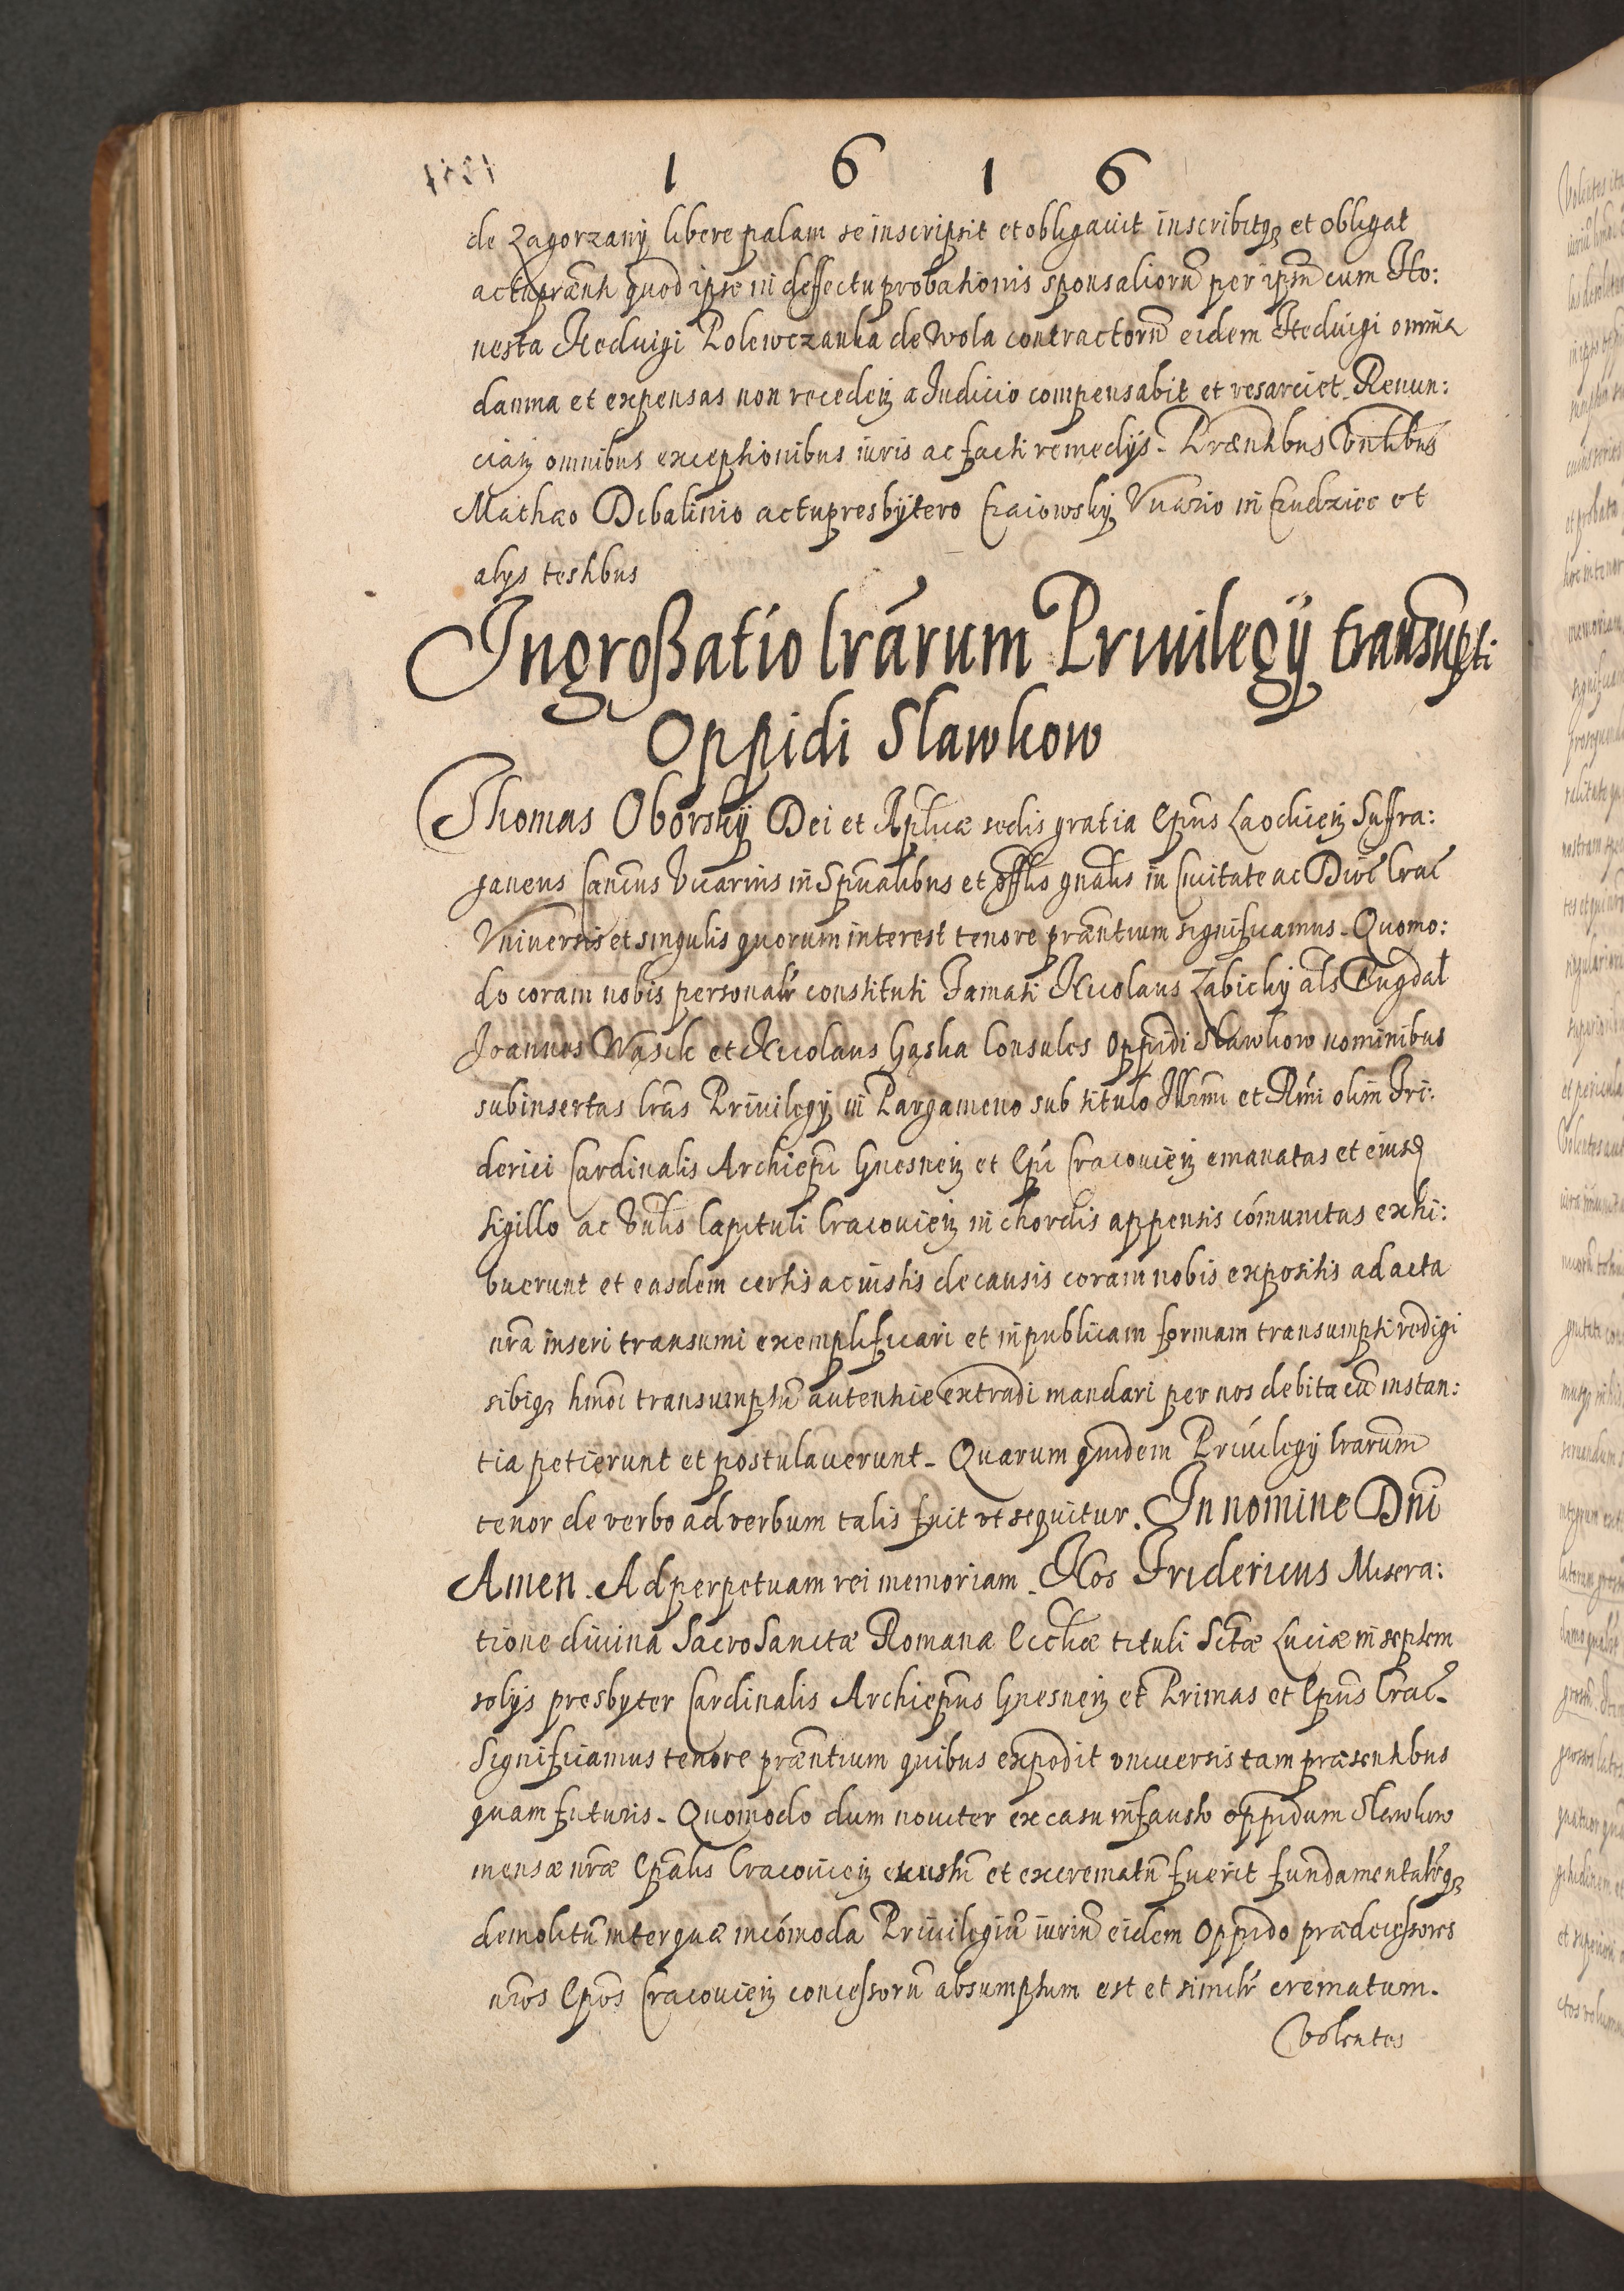 1 6 1 6
de Zagorzany libere palam se inscripsit et obligavit inscribitqꝫ et obligat
actu præñti quod ipse in deffectu probationis sponsaliorū per ipm̃ cum Ho:
nesta Heduigi Polewczanka de Wola contractorū eidem Heduigi omnia
damna et expensas non recedeñ a Iudicio compensabit et resarciet. Renun:
ciañ omnibus exceptionibus iuris ac facti remedijs. Præñtibus
Mathæo Dibalinio actu presbytero et
alijs testibus
Ingroßatio lr̃arum Priuilegij transũpti
Oppidi Slawkow
Thomas Oborskij Dei et Ap̃licæ sedis gratia Ep̃us Laodiceñ Suffra:
ganeus Canc̃us Vicarius in Sp̃ualibus et offĩlis gñalis in Ciuitate ac Diœc̃ Crac̃
Vniversis et singulis quorum interest tenore præñtium significamus. Quomo:
do coram nobis personal̃r constituti Famati Nicolaus Zabickij al̃s Bugdał
Joannes Wąsik et Nicolaus Gąska Consules Oppidi Slawkow nominibus
subinsertas lr̃as Priuilegij in Pargameno sub titulo Illm̃i et Rm̃i olim Fri:
derici Cardinalis Archiep̃i Gnesneñ et Ep̃i Cracouieñ emanatas et eiusd̃
sigillo ac Vñlis Capituli Cracouieñ in chordis appensis cõmunitas exhi:
buerunt et easdem certis ac iustis de causis coram nobis expositis ad acta
nr̃a inseri transumi exemplificari et in publicam formam transumpti redigi
sibiqꝫ hmõi transumptũ autentice extradi mandari per nos debita cũ instan:
tia petierunt et postulauerunt. Quarum quidem Priuilegij lr̃arum
tenor de verbo ad verbum talis fuit vt sequitur. In nomine Dñi
Amen. Ad perpetuam rei memoriam. Nos Fridericus Misera:
tione diuina SacroSanctæ Romanæ Eccl̃iæ tituli Sc̃tæ Luciæ in septem
solijs presbyter Cardinalis Archiep̃us Gnesneñ et Primas et Ep̃us Crac̃.
Significamus tenore præñtium quibus expedit vniuersis tam præsentibus
quam futuris. Quomodo dum nouiter ex casu infausto oppidum Slawkow
mensæ nr̃æ Ep̃alis Cracouieñ exustũ et excrematũ fuerit fundamental̃rqꝫ
demolitũ inter quæ incõmoda Priuilegiũ iuriũ eidem Oppido prædecessores
nr̃os Ep̃os Cracouieñ concessorũ absumptum est et simil̃r crematum.
Volentes